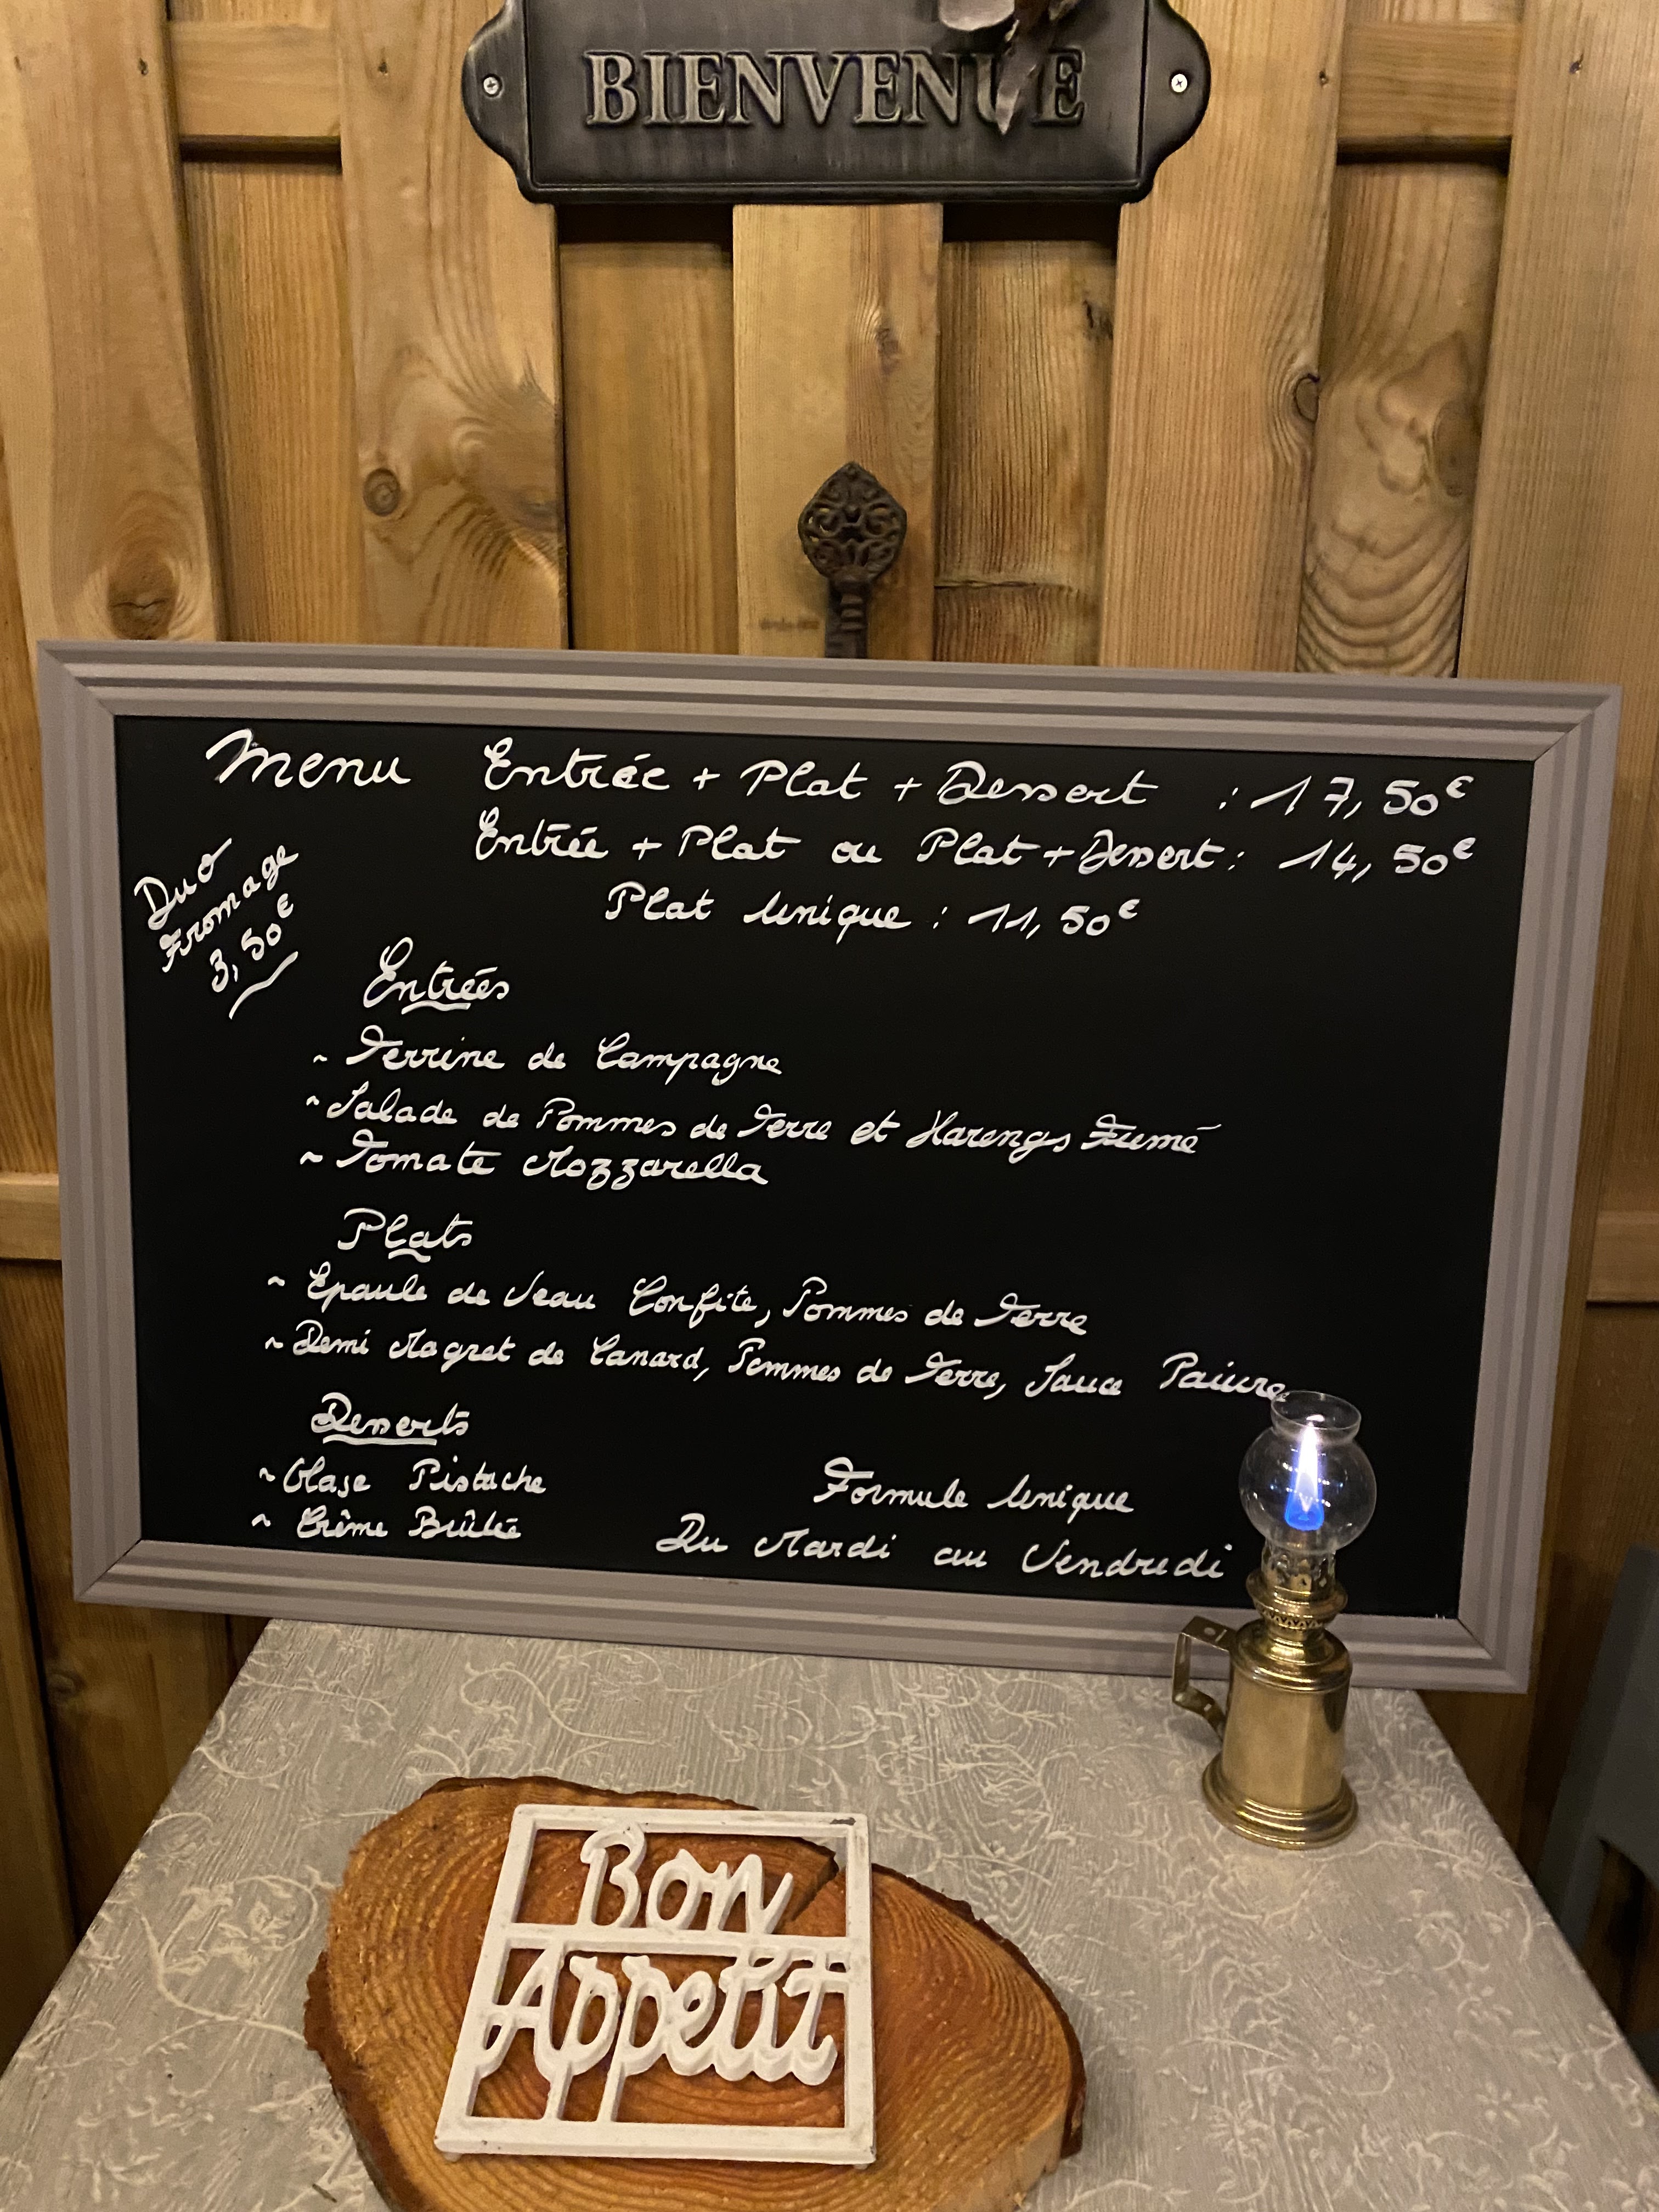 BIENVENUE
Menu Entrée + Plat + Dessert : 17,50€
Entrée + Plat ou Plat + Dessert : 14,50€
Plat Unique : 11,50€
Duo
Fromage
3,50€
Entrées
~ Terrine de Campagne
~ Salade de Pommes de Terre et Harengs Fumé
~ Tomate Mozzarella
Plats
~ Epaule de Veau Confite, Pommes de Terre
~ Demi Magret de Canard, Pommes de Terre, Sauce Poivre
Desserts
~ Glase Pistache
~ Crème Brûlée
Formule Unique
Du Mardi au Vendredi
Bon
Appetit